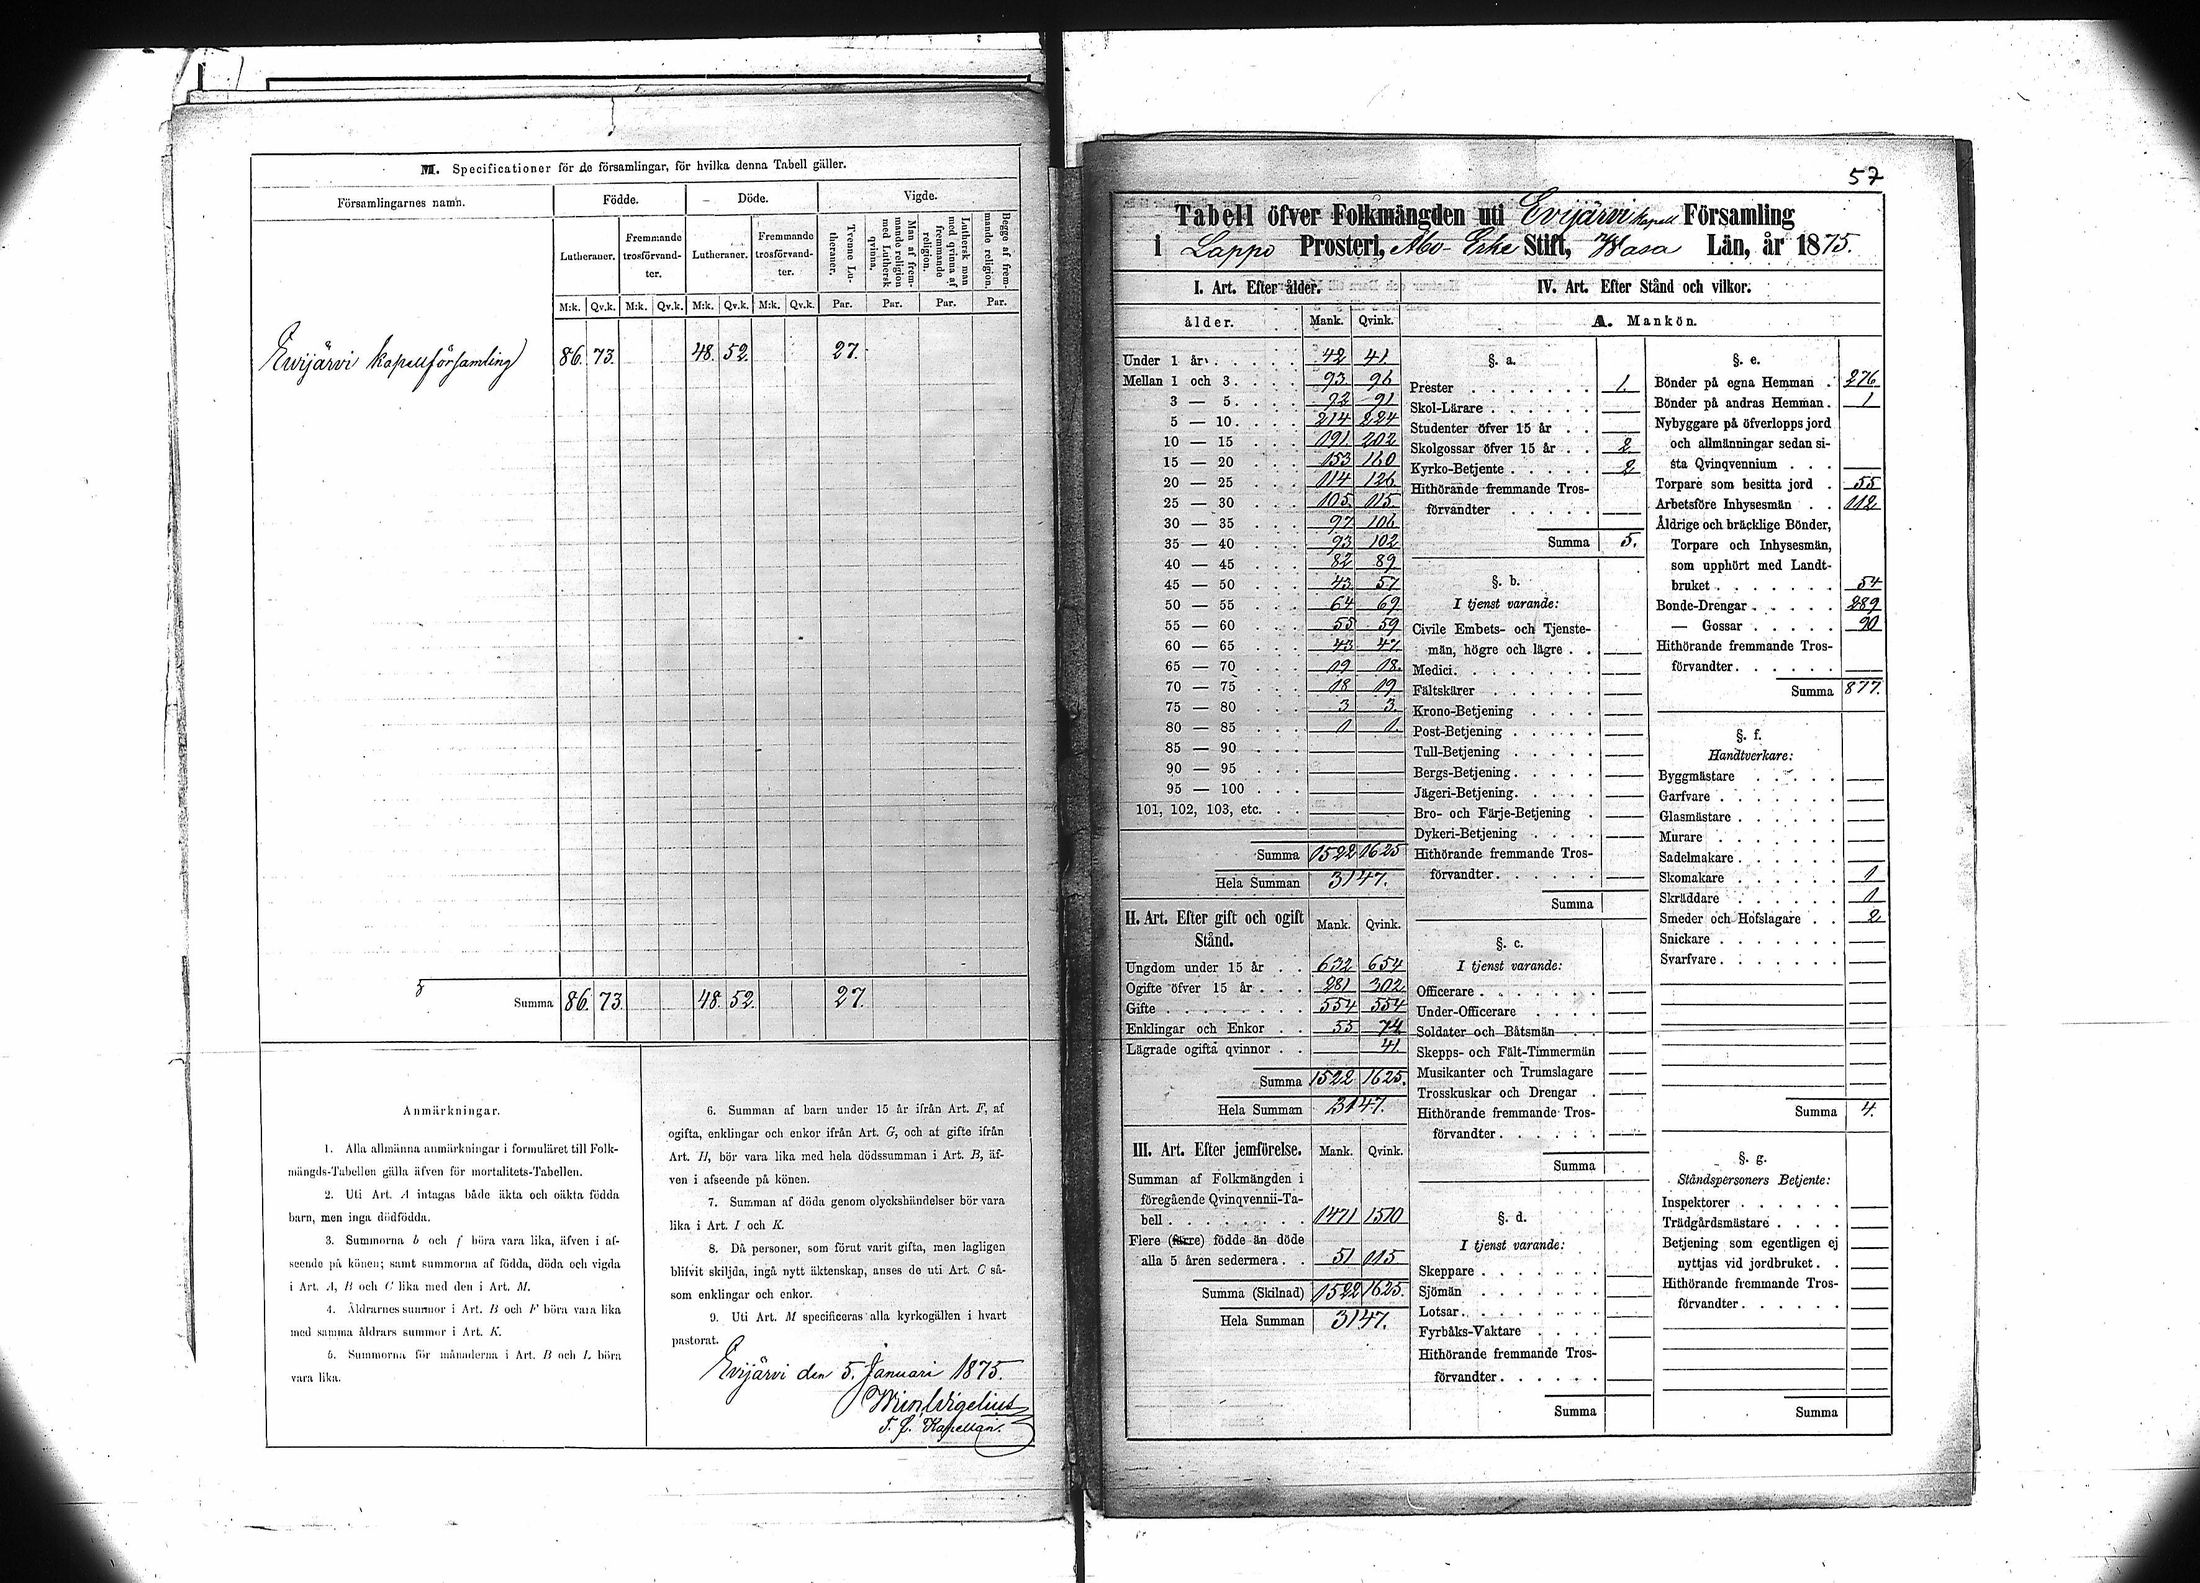 M. Specificationer för de församlingar, för hvilka denna Tabell gäller.
Församlingarnes namn. Födde. Döde. Vigde.
Lutheraner. Fremmande trosförvandter. Lutheraner. Fremmande trosförvandter. Tvenne Lutheraner. Man af fremmande religion med Luthersk qvinna. Luthersk man med qvinna af fremmande religion. Begge af fremmande religion.
M:k. Qv.k. M:k. Qv.k. M:k. Qv.k. M:k. Qv.k. Par. Par. Par. Par.
Ewijärvi kapellförsamling 86. 73. 48. 52. 27.
Summa 86. 73. 48. 52. 27.
Anmärkningar.
1. Alla allmänna anmärkningar i formuläret till Folk-
mängds-Tabellen gälla äfven för mortalitets-Tabellen.
2. Uti Art. A intagas både äkta och oäkta födda
barn, men inga dödfödda.
3. Summorna b och f böra vara lika, äfven i af-
seende på könen; samt summorna af födda, döda och vigda
i Art. A, B och C lika med den i Art. M.
4. Åldrarnes summor i Art. B och F böra vara lika
med samma åldrars summor i Art. K.
5. Summorna för månaderna i Art. B och L böra
vara lika.
6. Summan af barn under 15 år ifrån Art. F, af
ogifta, enklingar och enkor ifrån Art. G, och af gifte ifrån
Art. H, bör vara lika med hela dödssumman i Art. B, äf-
ven i afseende på könen.
7. Summan af döda genom olyckshändelser bör vara
lika i Art. I och K.
8. Då personer, som förut varit gifta, men lagligen
blifvit skiljda, ingå nytt äktenskap, anses de uti Art. C så-
som enklingar och enkor.
9. Uti Art. M specificeras alla kyrkogällen i hvart
pastorat.
Evijärvi den 5. Januari 1875.
T. f. Kapellan.
57
Tabell öfver Folkmängden uti Evijärvi kapell Församling
i Lappo Prosteri, Åbo-Erke Stift, Wasa Län, år 1875.
I. Art. Efter ålder.
ålder. Mank. Qvink.
Under 1 år 42 41.
Mellan 1 och 3 93. 96
3 — 5 92 91
5 — 10 214 224
10 — 15 191 202
15 — 20 153 160
20 — 25 114 126
25 — 30 105. 115.
30 — 35 97 106
35 — 40 93 102
40 — 45 82 89
45 — 50 43 57
50 — 55 64 69
55 — 60 55 59
60 — 65 43 47
65 — 70 19 18.
70 — 75 18 19
75 — 80 3 3.
80 — 85 1 1.
85 — 90
90 — 95
95 — 100
101, 102, 103, etc.
Summa 1522 1625
Hela Summan 3147.
II. Art. Efter gift och ogift Stånd. Mank. Qvink.
Ungdom under 15 år 632 654
Ogifte öfver 15 år 281 302
Gifte 554 554
Enklingar och Enkor 55 74
Lägrade ogifta qvinnor 41.
Summa 1522 1625.
Hela Summan 3147.
III. Art. Efter jemförelse. Mank. Qvink.
Summan af Folkmängden i
föregående Qvinqvennii-Ta-
bell 1471 1510
Flere (färre) födde än döde
alla 5 åren sedermera 51 115
Summa (Skilnad) 1522 1625.
Hela Summan 3147.
IV. Art. Efter Stånd och vilkor.
A. Mankön.
§. a.
Prester 1.
Skol-Lärare
Studenter öfver 15 år
Skolgossar öfver 15 år 2.
Kyrko-Betjente 2
Hithörande fremmande Tros-
förvandter
Summa 5.
§. b.
I tjenst varande:
Civile Embets- och Tjenste-
män, högre och lägre
Medici.
Fältskärer
Krono-Betjening
Post-Betjening
Tull-Betjening
Bergs-Betjening
Jägeri-Betjening.
Bro- och Färje-Betjening
Dykeri-Betjening
Hithörande fremmande Tros-
förvandter
Summa
§. c.
I tjenst varande:
Officerare
Under-Officerare
Soldater och Båtsmän
Skepps- och Fält-Timmermän
Musikanter och Trumslagare
Trosskuskar och Drengar
Hithörande fremmande Tros-
förvandter
Summa
§. d.
I tjenst varande:
Skeppare
Sjömän
Lotsar
Fyrbåks-Vaktare
Hithörande fremmande Tros-
förvandter
Summa
§. e.
Bönder på egna Hemman 276
Bönder på andras Hemman 1
Nybyggare på öfverlopps jord
och allmänningar sedan si-
sta Qvinqvennium
Torpare som besitta jord 55
Arbetsföre Inhysesmän 112
Åldrige och bräcklige Bönder,
Torpare och Inhysesmän,
som upphört med Landt-
bruket 54
Bonde-Drengar 289
— Gossar 90
Hithörande fremmande Tros-
förvandter
Summa 877.
§. f.
Handtverkare:
Byggmästare
Garfvare
Glasmästare
Murare
Sadelmakare
Skomakare 1
Skräddare 1
Smeder och Hofslagare 2
Snickare
Svarfvare
Summa 4.
§. g.
Ståndspersoners Betjente:
Inspektorer
Trädgårdsmästare
Betjening som egentligen ej
nyttjas vid jordbruket
Hithörande fremmande Tros-
förvandter
Summa